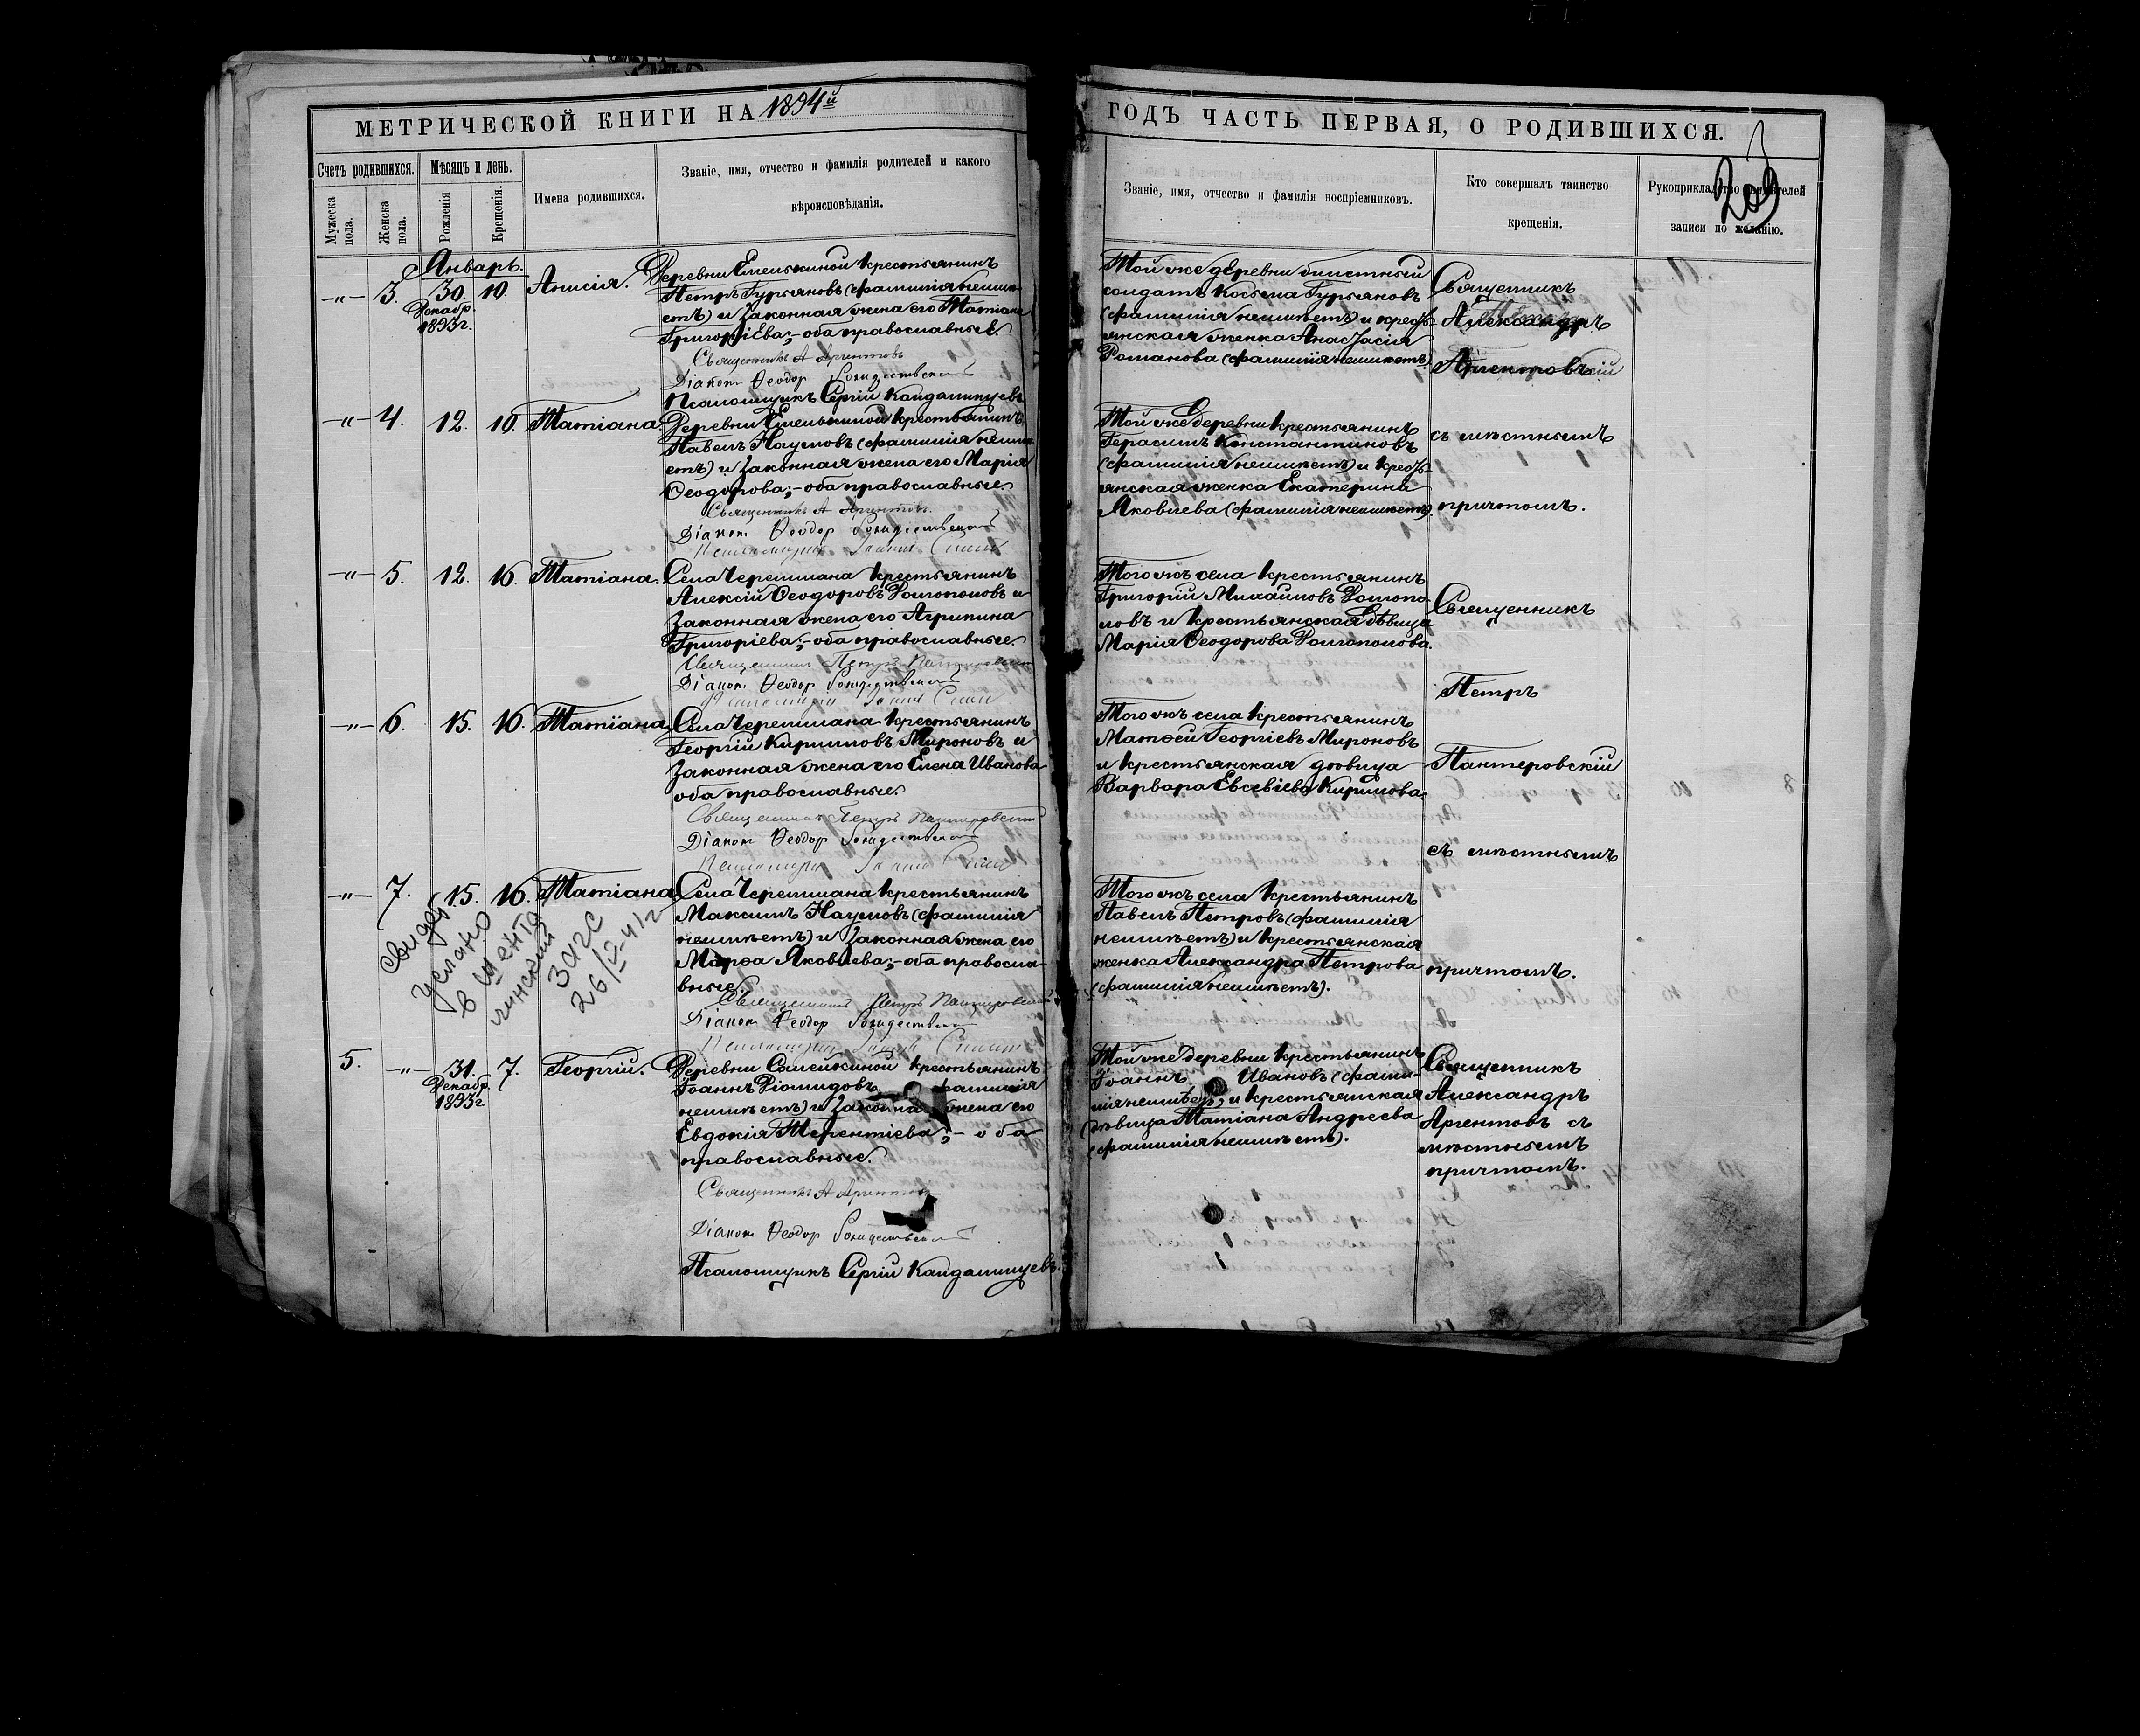 МЕТРИЧЕСКОЙ КНИГИ НА 1894й
ГОДЪ ЧАСТЬ ПЕРВАЯ, О РОДИВШИХСЯ.
203
Счетъ родившихся.
Мужеска пола.
Женска пола.
Мѣсяцъ и день.
Рожденія
Крещенія.
Имена родившихся.
Званіе, имя, отчество и фамилія родителей и какого
вѣроисповѣданія.
Званіе, имя, отчество и фамилія воспріемниковъ.
Кто совершалъ таинство
крещенія.
Рукоприкладство свидѣтелей
записи по желанію.
Январь.
—"— 3. 30. 10. Анисія.
Декабр.
1893г.
Деревни Емелькиной крестьянинъ
Петръ Гурьяновъ (фамиліи неимѣ-
етъ) и законная жена его Татіана
Григоріева; – оба православные.
Священникъ А Аргентовъ
Діаконъ Ѳеодор Рождественскій
Псаломщикъ Сергій Кандалинцевъ
Той же деревни билетный
солдатъ Косьма Гурьяновъ
(фамиліи неимѣетъ) и кресть-
янская женка Анастасія
Романова (фамиліи неимѣетъ)
Священникъ
Александръ
Аргентовъ
—"— 4. 12. 10. Татіана.
Деревни Емелькиной крестьянинъ
Павелъ Наумовъ (фамиліи неимѣ-
етъ) и законная жена его Марія
Ѳеодорова; – оба православные.
Священникъ А Аргентовъ.
Діаконъ Ѳеодор Рождественскій
Той же деревни крестьянинъ
Герасимъ Константиновъ
(фамиліи неимѣетъ) и кресть-
янская женка Екатерина
Яковлева (фамиліи неимѣетъ).
съ мѣстнымъ
причтомъ.
—"— 5. 12. 16. Татіана.
Села Черемшана крестьянинъ
Алексій Ѳеодоровъ Долгополовъ и
законная жена его Агрипина
Григоріева; – оба православные.
Священникъ Петръ Пантеровскій
Діаконъ Ѳеодор Рождественскій
Тогожъ села крестьянинъ
Григорій Михаиловъ Долгопо-
ловъ и крестьянская дѣвица
Марія Ѳеодорова Долгополова.
Священникъ
Петръ
—"— 6. 15. 16. Татіана.
Села Черемшана крестьянинъ
Георгій Кириловъ Мироновъ и
законная жена его Елена Иванова
оба православные.
Священникъ Петръ Пантеровскій
Діаконъ Ѳеодор Рождественскій
Тогожъ села крестьянинъ
Матѳей Георгіевъ Мироновъ
и крестьянская дѣвица
Варвара Евсевіева Кирилова.
Пантеровскій
съ мѣстнымъ
—"— 7. 15. 16. Татіана
Села Черемшана крестьянинъ
Максимъ Наумовъ (фамиліи
неимѣетъ) и законная жена его
Марѳа Яковлева; – оба правосла-
вные.
Священникъ Петръ Пантеровскій
Діаконъ Ѳеодор Рождественскій
Тогожъ села крестьянинъ
Павелъ Петровъ (фамиліи
неимѣетъ) и крестьянская
женка Александра Петрова
(фамиліи неимѣетъ).
причтомъ.
Свидет
услано
в Шента
линский
ЗАГС
26/II-41г
5. —"— 31. 7. Георгій.
Декабр.
1893г.
Деревни Самейкиной крестьянинъ
Іоаннъ Діомидовъ фамиліи
неимѣетъ) и законна жена его
Евдокія Терентіева; – оба
православные.
Священникъ А Аргентовъ
Діаконъ Ѳеодор Рождественскій
Псаломщикъ Сергій Кандалинцевъ.
Той же деревни крестьянинъ
Іоаннъ Ивановъ (фами-
ліи неимѣетъ) и крестьянская
дѣвица Татіана Андреева
(фамиліи неимѣетъ).
Священникъ
Александръ
Аргентовъ съ
мѣстнымъ
причтомъ.